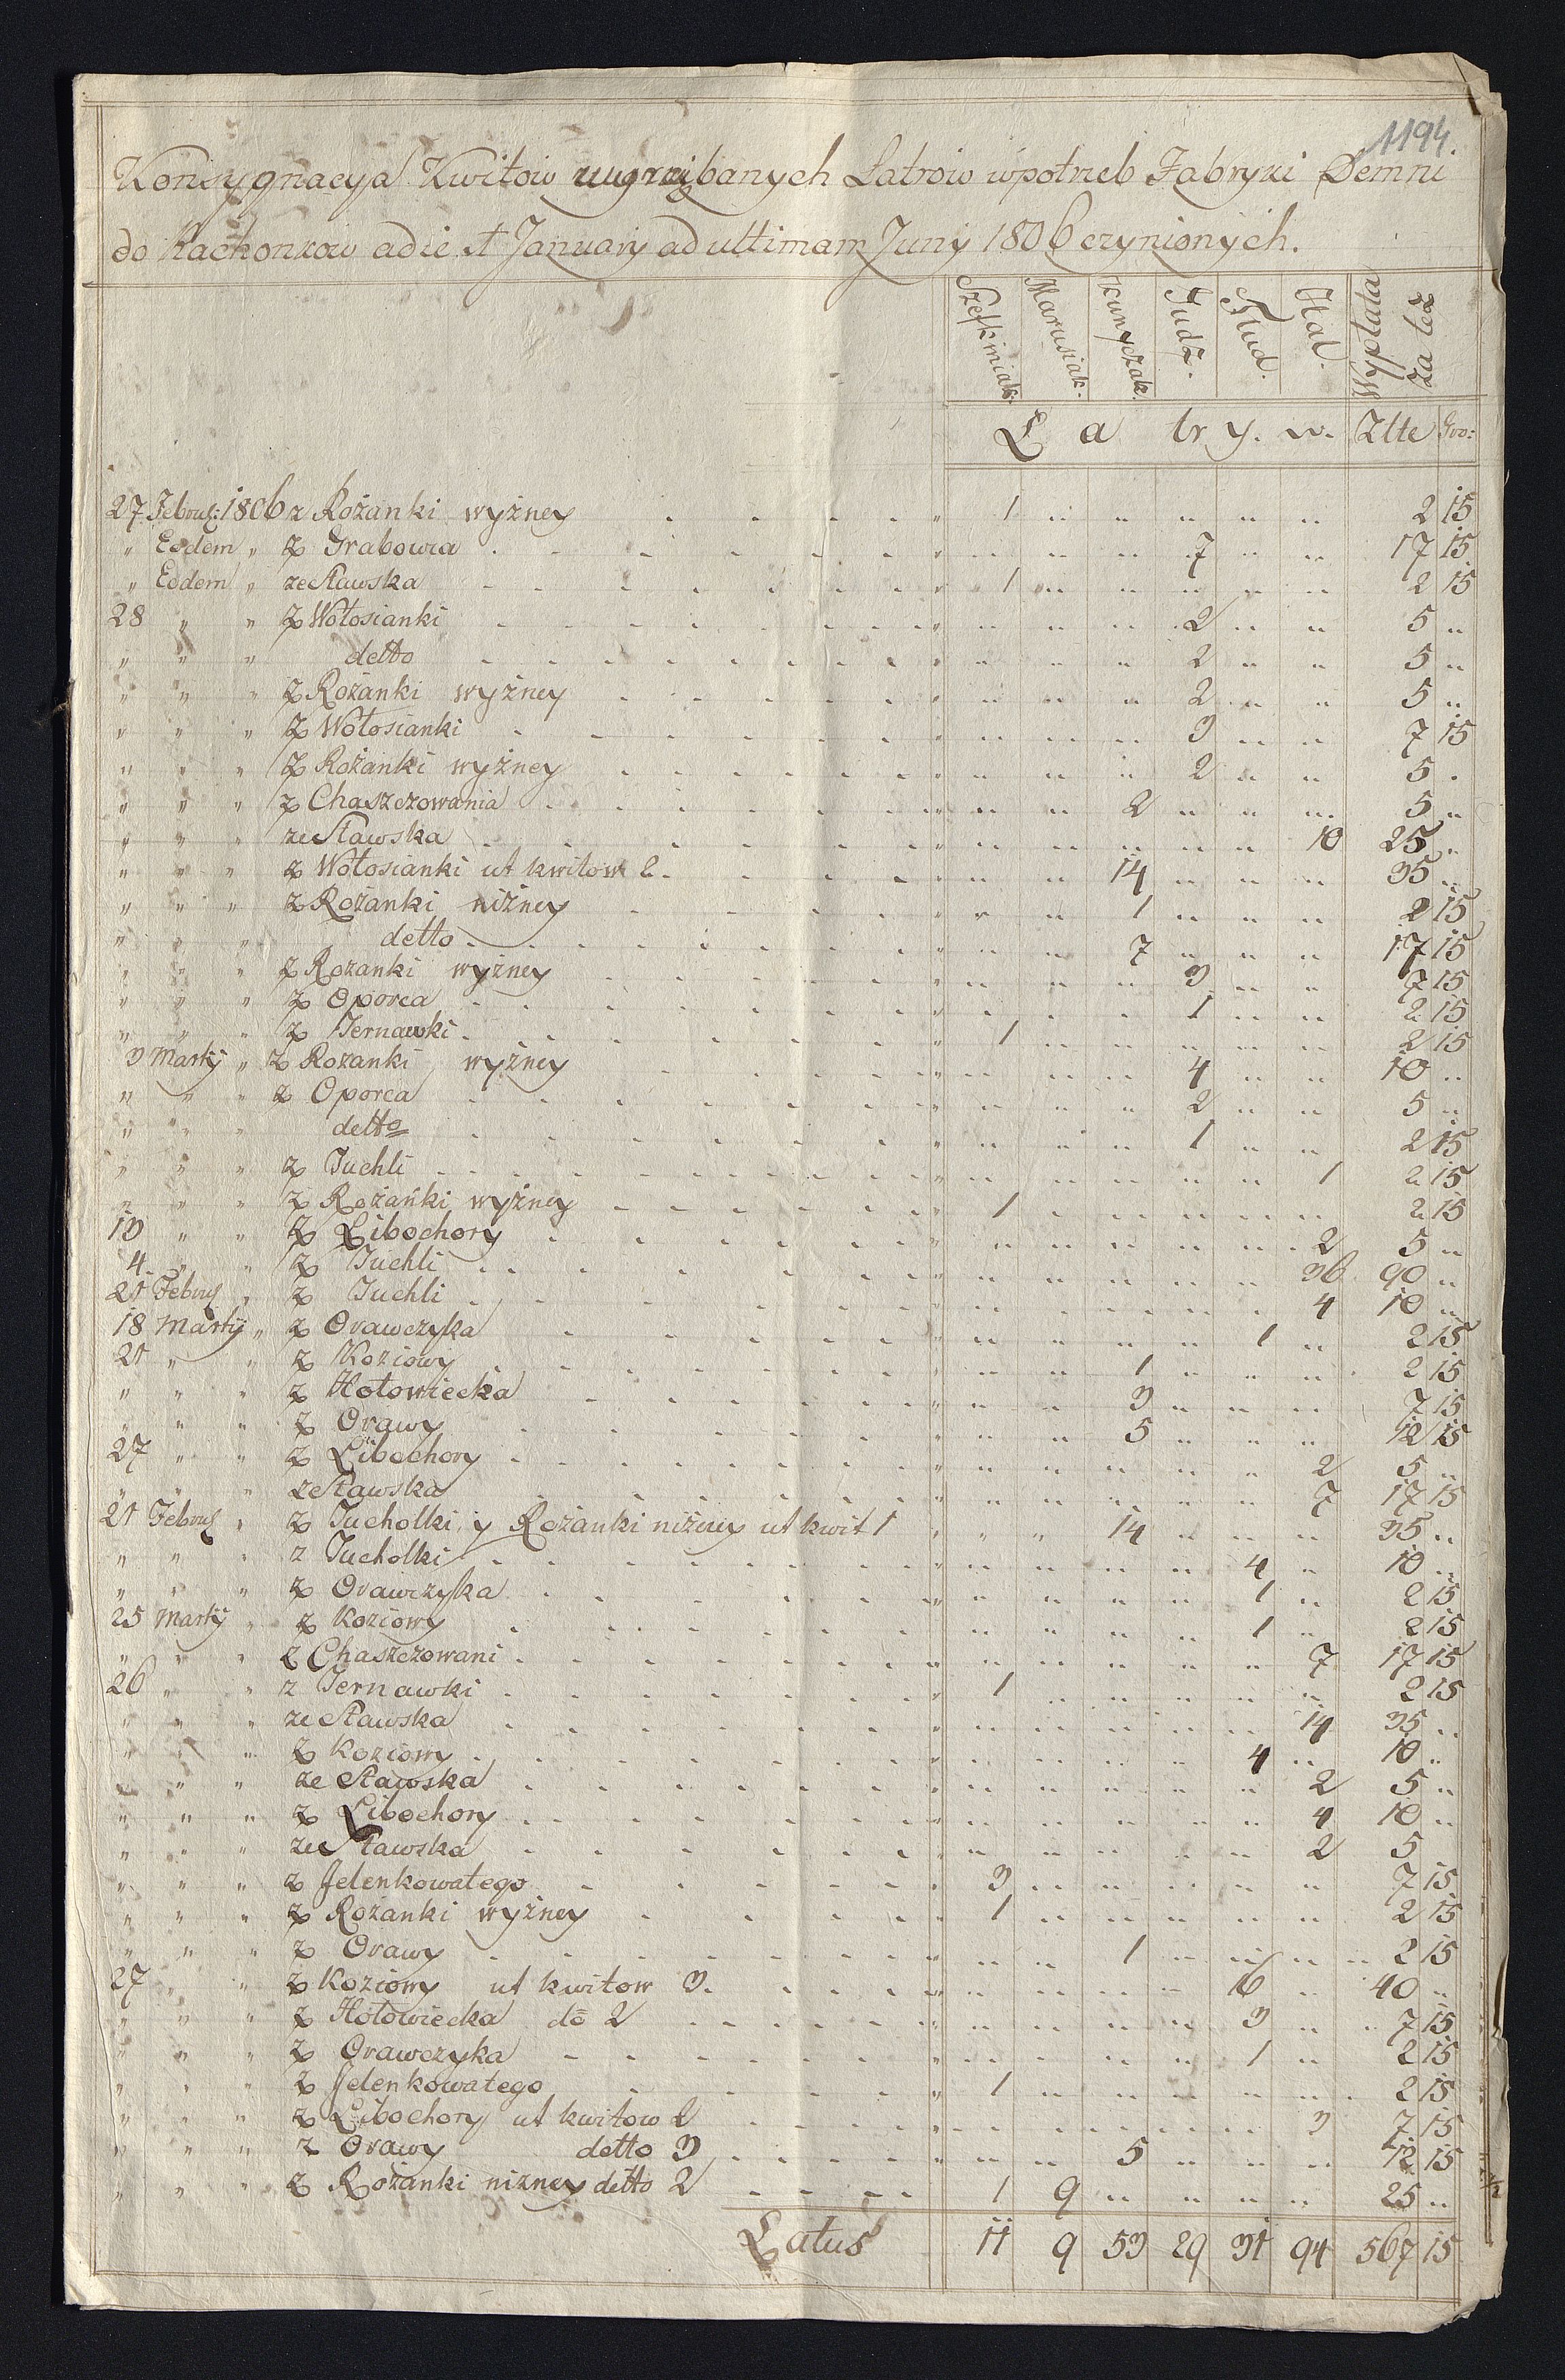 1194.
Konsygnacyd Kwitow wygrzibanych Latrow w potrzeb Fabryki Demni
do Rachonkow adie 1 January ad ultimam Juny 1806 czynionych.
Szefkiniak. Marusiak. Kunyczak. Gudz. Hud. Hal. Wypłata za też
Latry. w. Złte Gro:
27 Febru: 1806 z Rożanki wyżney 1 2 15
" Eodem " z Grabowca 7 17 15
" Eodem " ze Sławska 1 2 15
28 " " z Wołosianki 2 5 "
" " " detto 2 5 "
" " " z Rożanki wyżney 2 5 "
" " " z Wołosianki 3 7 15
" " " z Rożanki wyżney 2 5 "
" " " z Chaszczowania 2 5 "
" " " ze Sławska 10 25 "
" " " z Wołosianki ut kwitow 2 14 35 "
" " " z Rożanki niżney 1 2 15
" " " detto 7 17 15
" " " z Rożanki wyżney 3 7 15
" " " z Oporca 1 2 15
" " " z Ternawki 1 2 15
3 Martij " z Rożanki wyżney 4 10 "
" " " z Oporca 2 5 "
" " " detto 1 2 15
" " " z Tuchli 1 2 15
" " " z Rożanki wyżney 1 2 15
13 " " z Libochory 2 5 "
4 " " z Tuchli 36 90 "
21 Febru " z Tuchli 4 10 "
18 Martij " z Orawczyka 1 2 15
21 " " z Koziowy 1 2 15
" " " z Hołowiecka 3 7 15
" " " z Orawy 5 12 15
27 " " z Libochory 2 5 "
" " " ze Sławska 7 17 15
21 Febru " z Tucholki y Rożanki niżney ut kwit 1 14 35 "
" " " z Tucholki 4 10 "
" " " z Orawczyka 1 2 15
25 Martij " z Koziowy 1 2 15
" " " z Chaszczowani 7 17 15
26 " " z Ternawki 1 2 15
" " " ze Sławska 14 35 "
" " " z Koziowy 4 10 "
" " " ze Sławska 2 5 "
" " " z Libochory 4 10 "
" " " ze Sławska 2 5
" " " z Jelenkowatego 3 7 15
" " " z Rożanki wyżney 1 2 15
" " " z Orawy 1 2 15
27 " " z Koziowy ut kwitow 3. 16 40 "
" " " z Hołowiecka do 2 3 7 15
" " " z Orawczyka 1 2 15
" " " z Jelenkowatego 1 2 15
" " " z Libochory ut kwitow 2 3 7 15
" " " z Orawy detto 3 5 12 15
" " " z Rożanki niżney detto 2 1 9 25 "
Latus 11 9 53 29 31 94 567 15